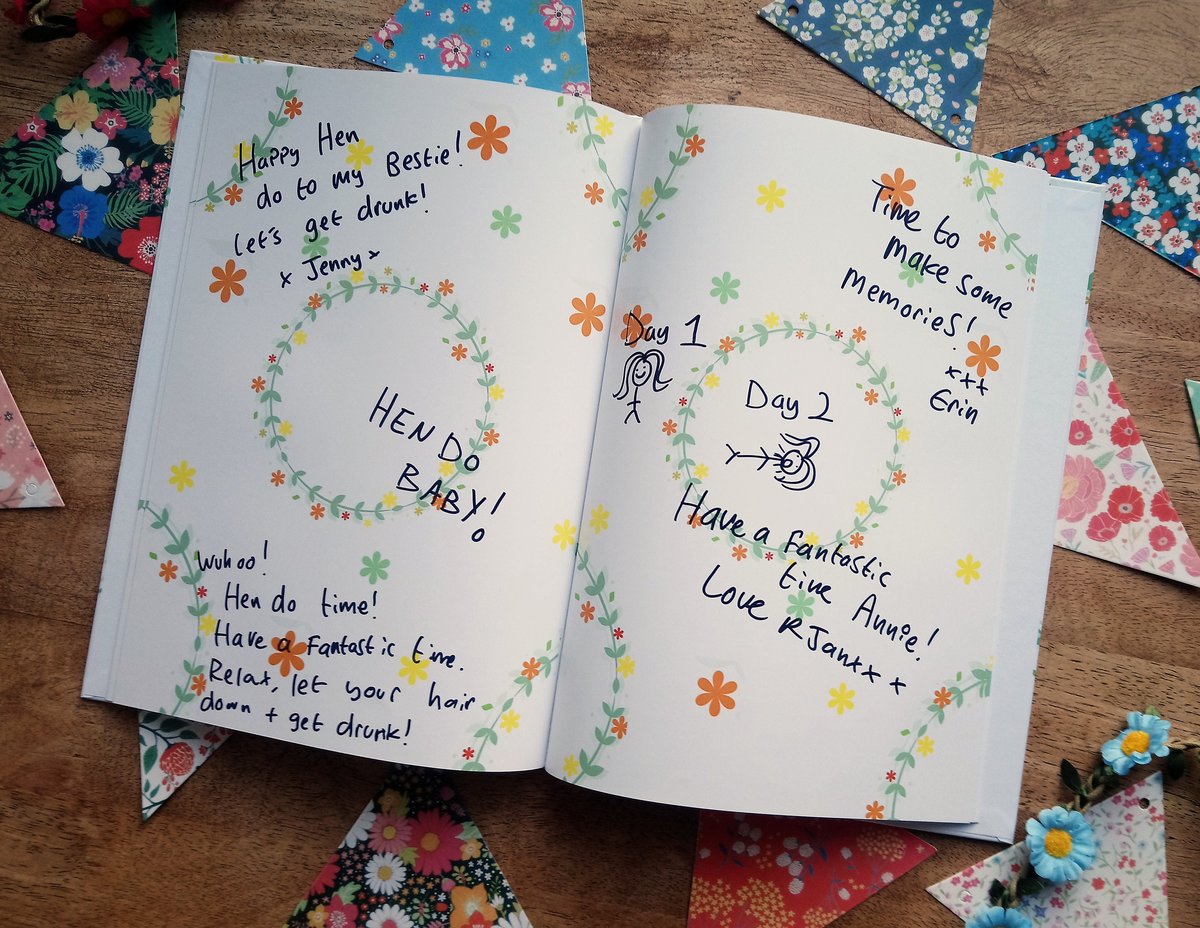 Happy Hen
do to my Bestie!
Let's get drunk!
x Jenny x
HEN DO
BABY!
Wuhoo!
Hen do time!
Have a fantastic time.
Relax, let your hair
down + get drunk!
Day 1
Time to
make some
memories!
xxx
Erin
Day 2
Have a fantastic
time Annie!
Love